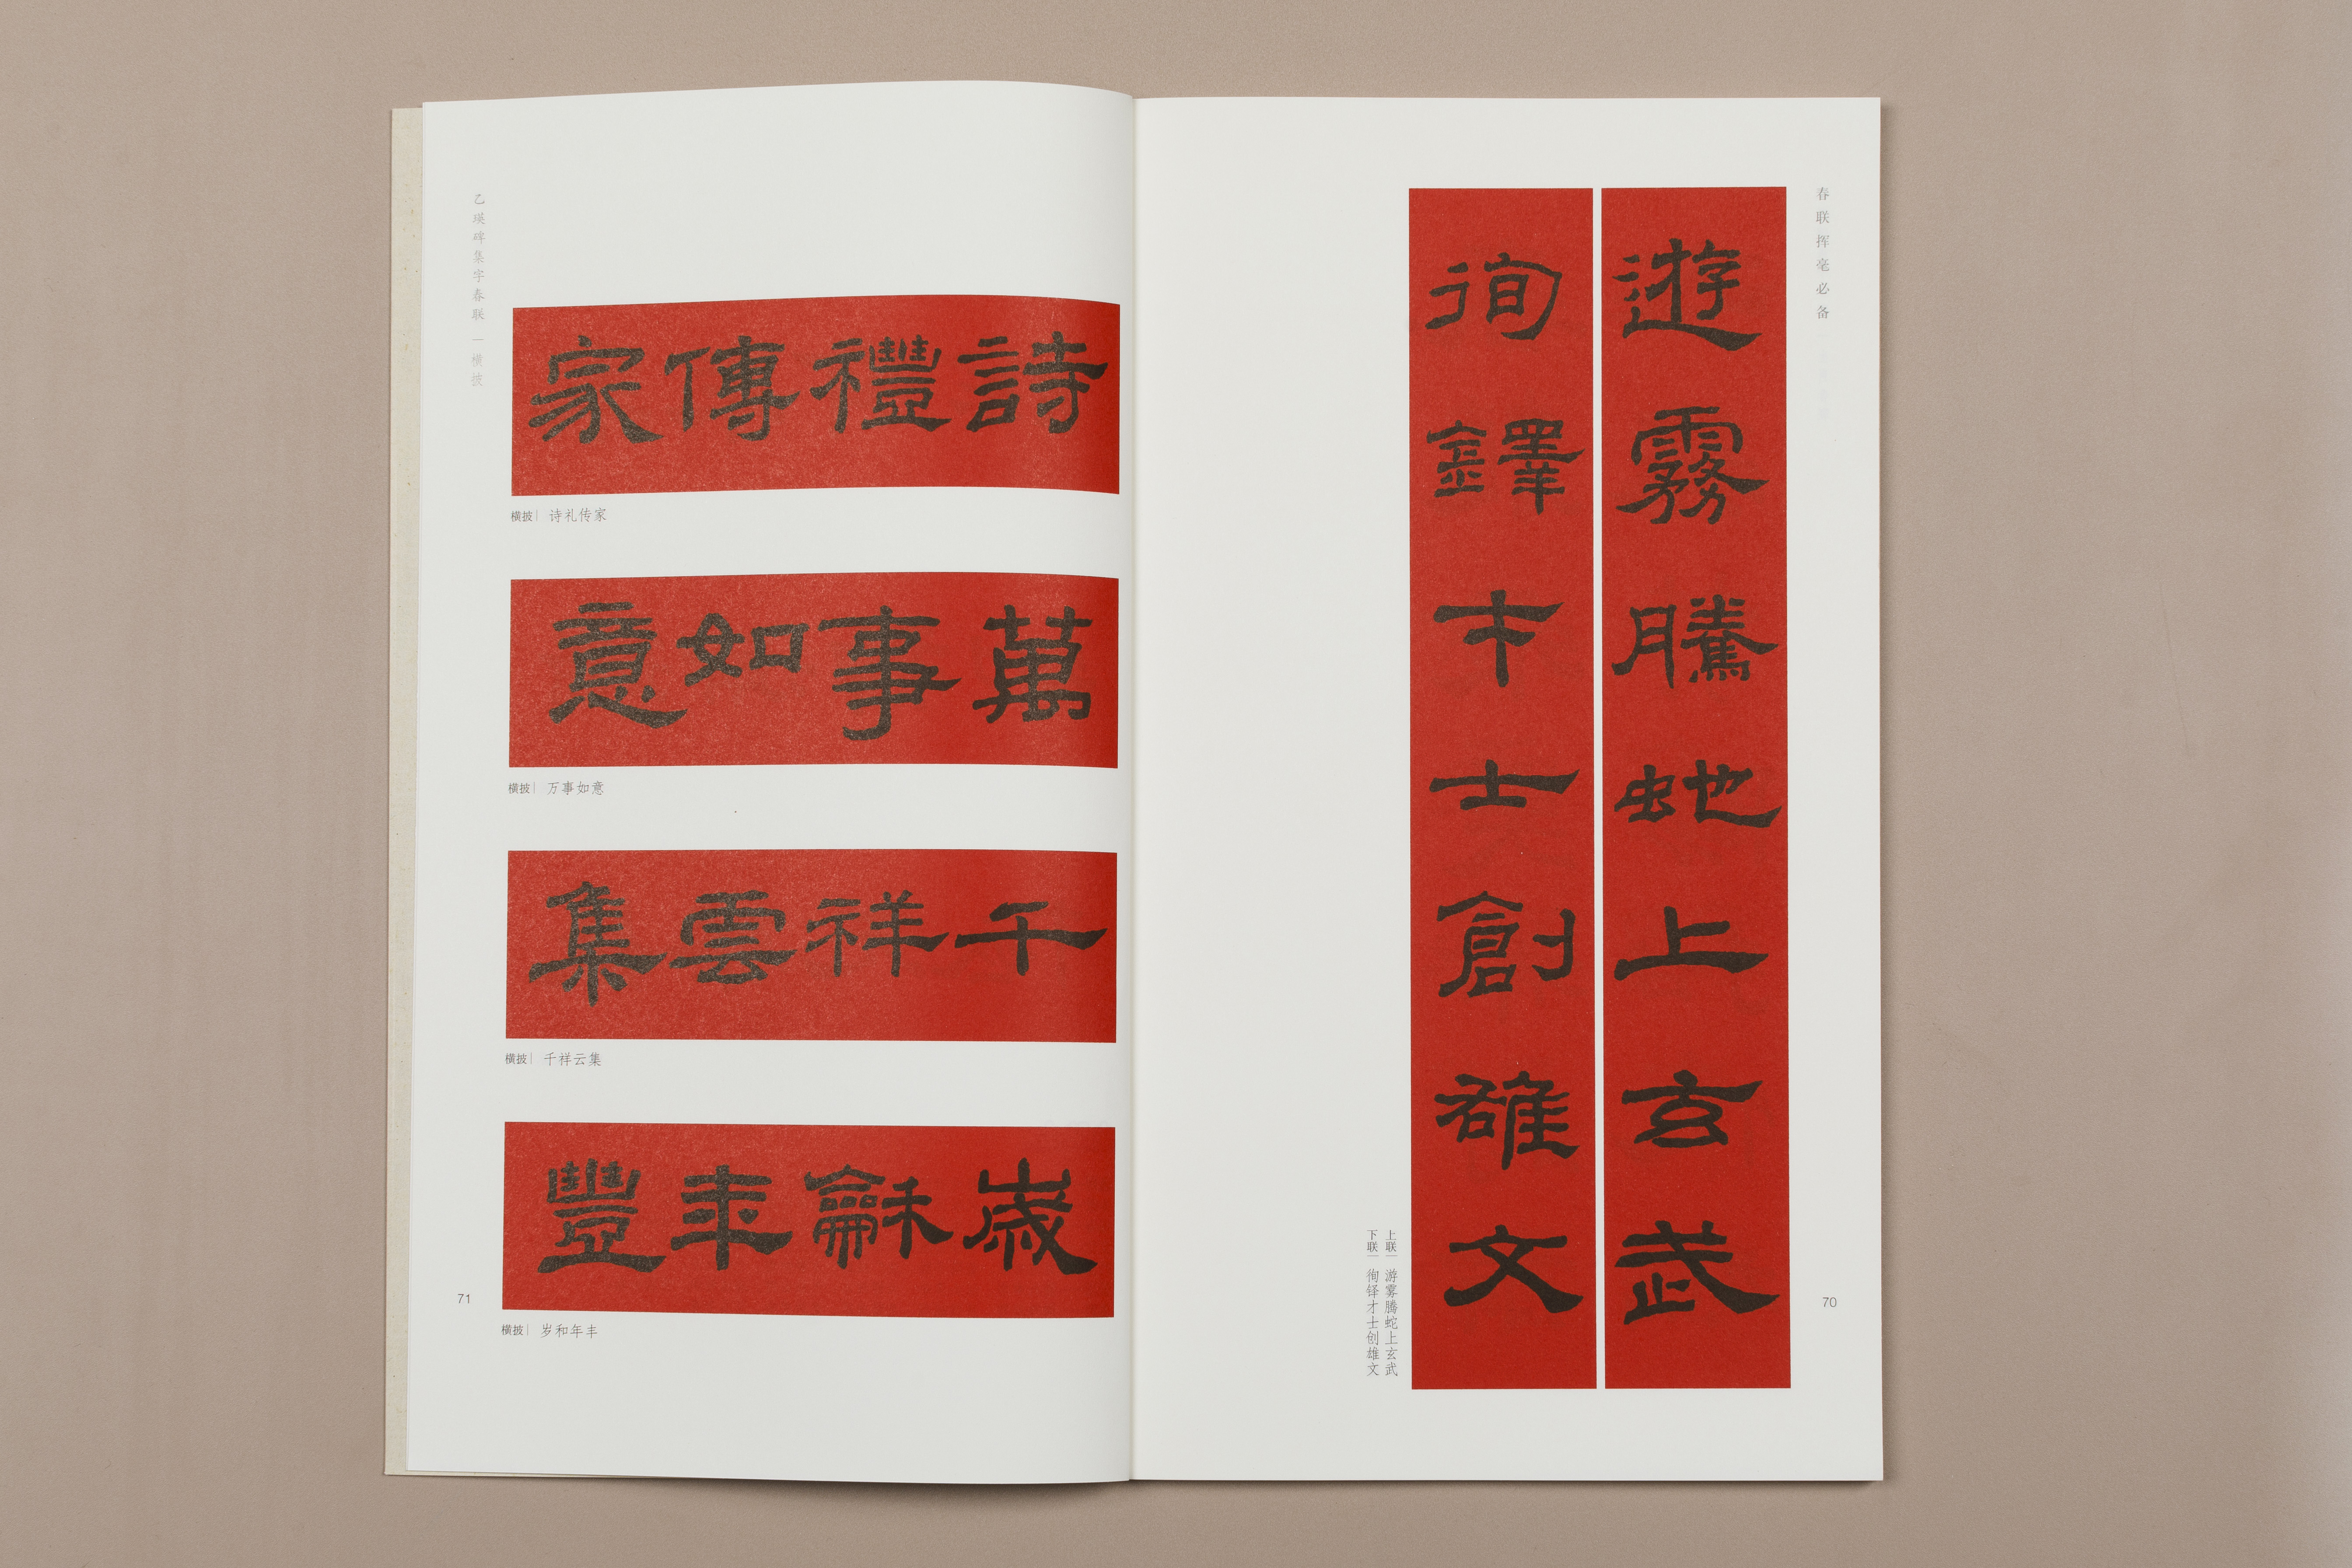 春联挥毫必备
遊霧騰虵上玄武
徇鐸才士創雄文
上联｜游雾腾蛇上玄武
下联｜徇铎才士创雄文
70
詩禮傳家
横披｜诗礼传家
萬事如意
横披｜万事如意
千祥雲集
横披｜千祥云集
歲龢年豐
横披｜岁和年丰
乙瑛碑集字春联｜横披
71